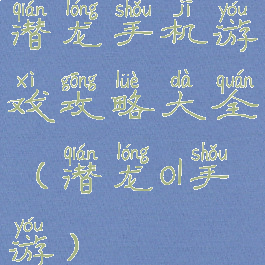 qián lóng shǒu jī yóu
潜龙手机游
xì gōng lüè dà quán
戏攻略大全
qián lóng shǒu
(潜龙이手
yóu
游)